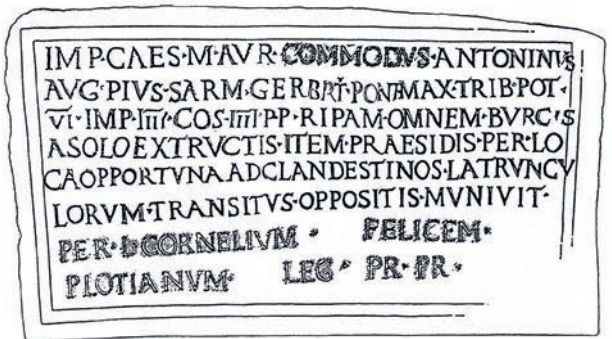 IMP·CAES·M·AVR·COMMODVS·ANTONINVS
AVG·PIVS·SARM·GER·BRIT·PONT·MAX·TRIB·POT·
VI·IMP·IIII·COS·IIII·P·P·RIPAM·OMNEM·BVRGIS
A SOLO EXTRVCTIS·ITEM·PRAESIDIS·PER·LO
CA OPPORTVNA AD CLANDESTINOS·LATRVNCV
LORVM·TRANSITVS·OPPOSITIS·MVNIVIT·
PER·L·CORNELIVM· FELICEM·
PLOTIANVM· LEG· PR·PR·